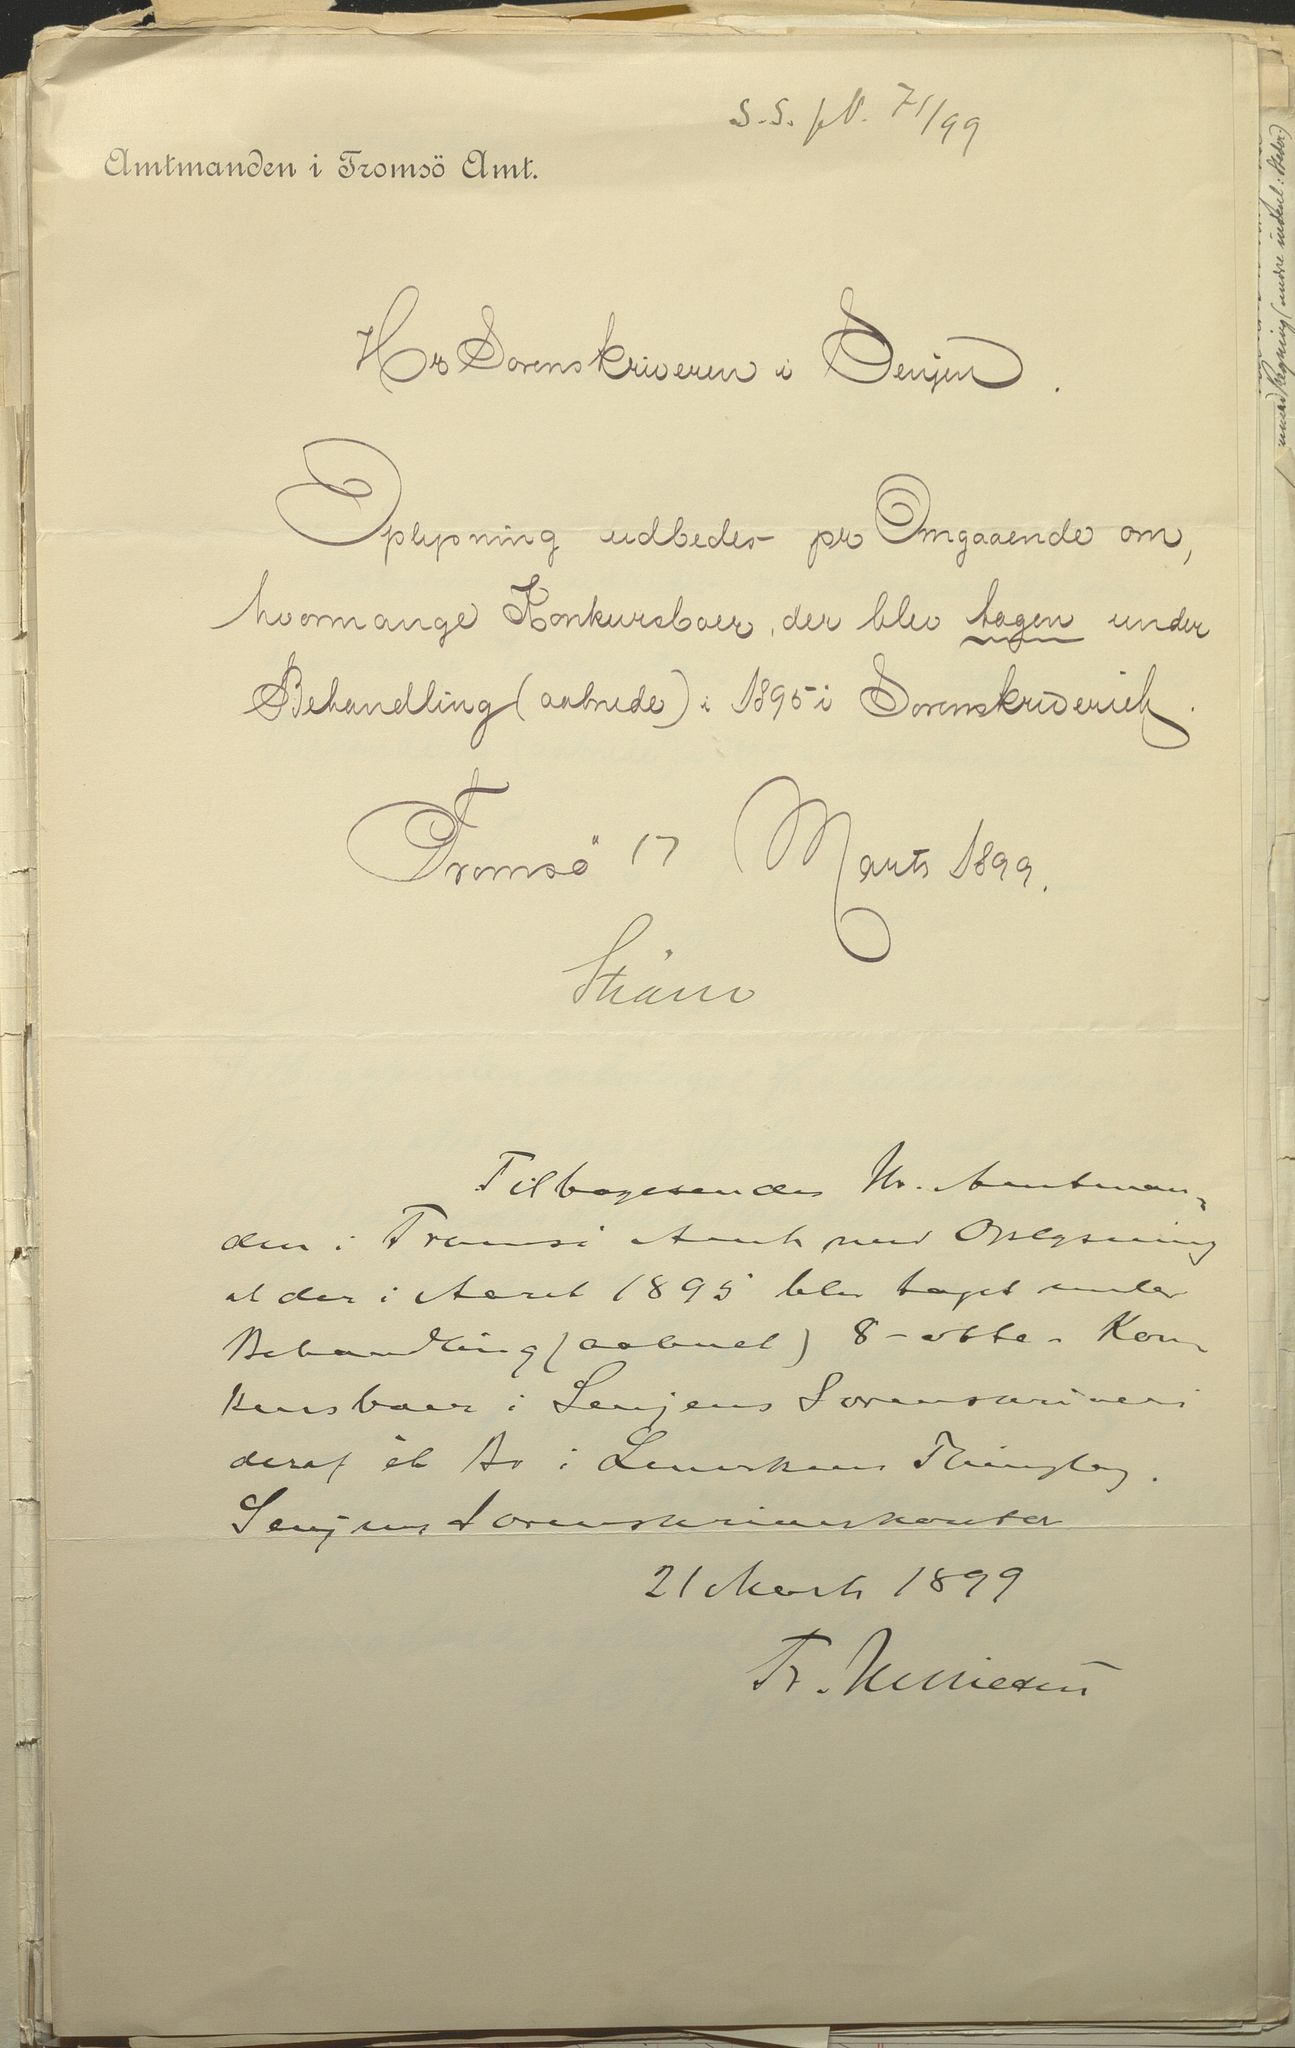 S. S. jN. 71/99
Amtmanden i Tromsö Amt.
Hr Sorenskriveren i Senjen.
Oplysning udbedes pr Omgaaende om,
hvormange Konkursboer, der blev tagen under
Behandling (aabnede) i 1895 i Sorenskriveriet.
Tromsö 17 Marts 1899.
Strøm
Tilbagesendes Hr. Amtman-
den i Tromsø Amt med Oplysning
at der i Aaret 1895 blev taget under
Behandling (aabnet) 8 - otte - Kon-
kursboer i Senjens Sorenskriveri
deraf ét Bo i Thinglag.
Senjens Sorenskriverkontor
21 Marts 1899
Fr.